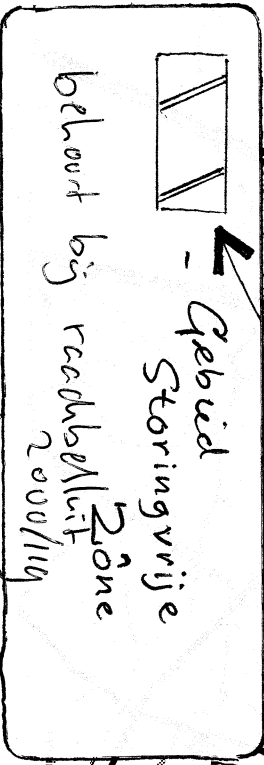 - Gebied
Storingvrije
Zône
behoort bij raadsbesluit
2000/119